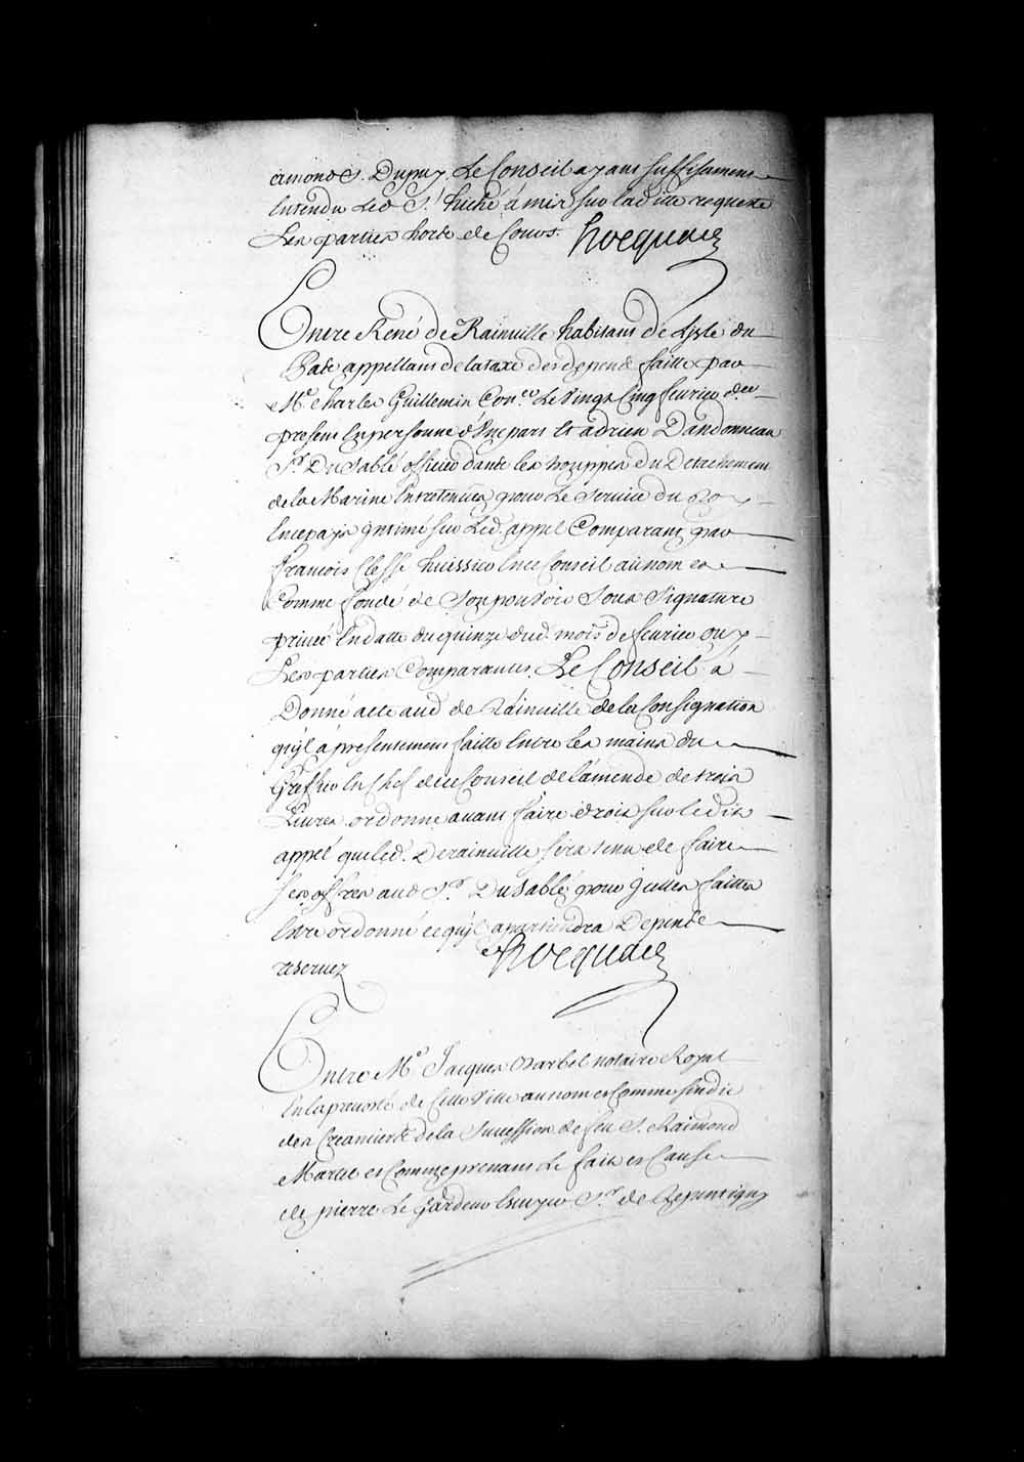 Dupuy Le Conseil ayant suffisament
Entendu Led. Sr. hiché à mis sur laditte requeste
Les parties hors de Cour. hocquart
Entre René de Rainville habitant de
appellant de la taxe des depens faitte par
Me. Charles Guillemin Coner. Le Vingt Cinq feurier der.
present En personne d'Une part Et adrien Dandonneau
Sr. Du Sablé officier dans les trouppes du Detachement
de la Marine Entretenües pour Le Service du Roy
En ce pays Intimé sur Led. appel Comparant par
françois Clesse huissier En ce Conseil au nom et
Comme fondé de Son pouvoir Sous Signature
privée En datte du quinze dud. mois de feurier ouy
Les parties Comparantes. Le Conseil à
Donné acte aud. de Rainville de la Consignation
qu'jl à presentement faitte Entre les mains du
Greffier En Chef de ce Conseil de l'amende de trois
Livres ordonne auant faire droit sur ledit
appel que led. Derainville sera tenu de faire
ses offres aud. Sr. Du Sablé, pour jcelles faittes
Estre ordonné ce qu'jl apartiendra Depens
reservez hocquart
Entre Me. Jacques Barbel notaire Royal
En la prevosté de Cette Ville au nom et Comme sindic
des Creanciers de la Succession de feu Sr. Raimond
Martel et Comme prenant Le fait et Cause
de pierre Le Gardeur Escuyer Sr. de Repentigny